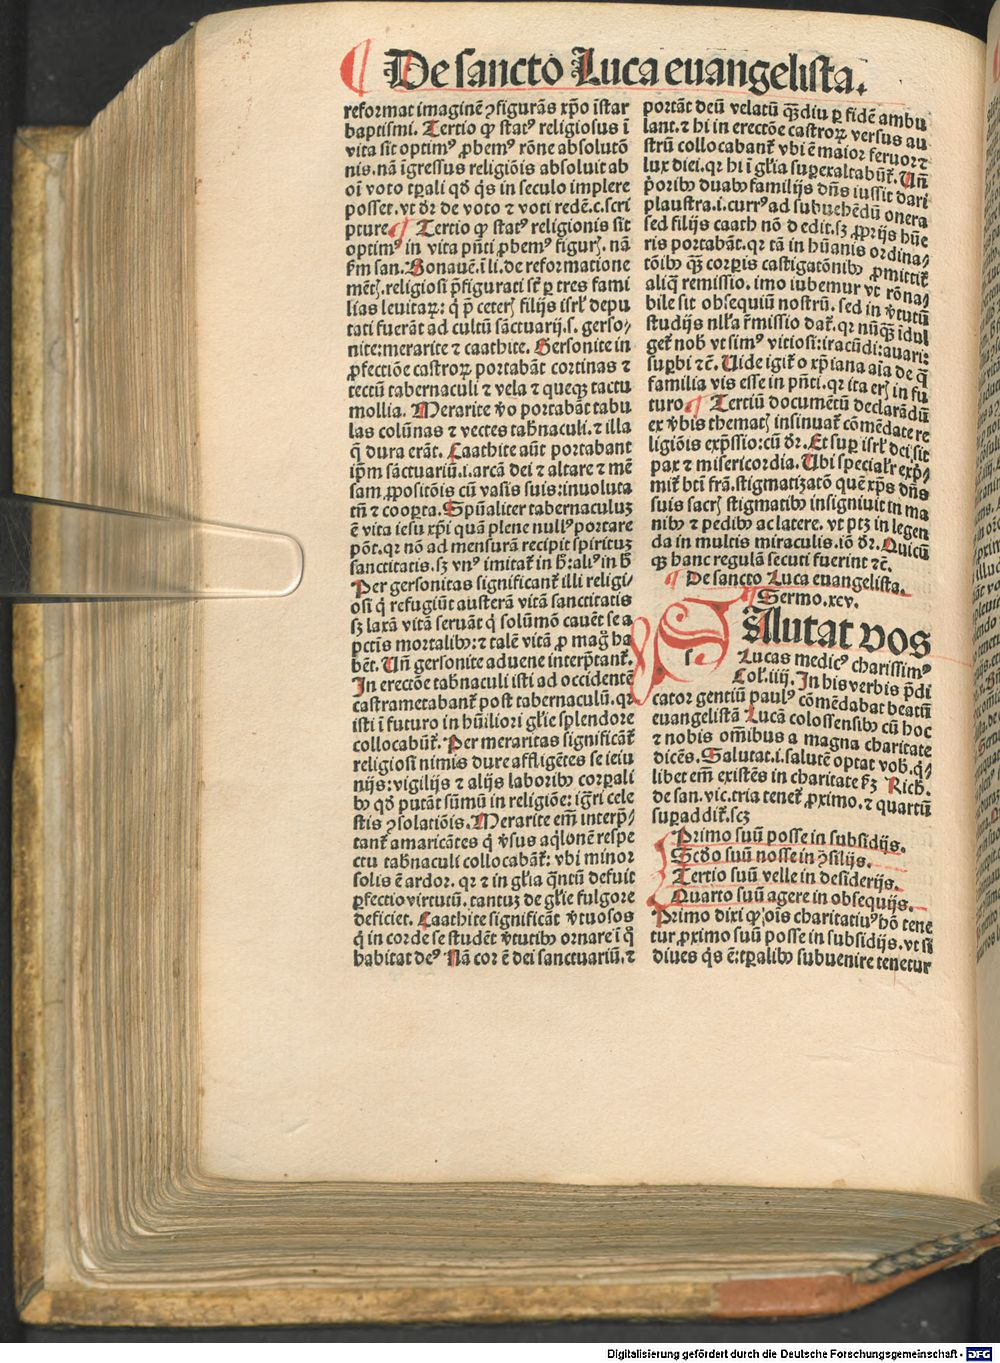 ¶ De sancto Luca euangelista.
reformat imaginē ⁊figurās xp̄o īstar
baptismi. Tertio ꝙ statꝰ religiosus ī
vita sit optimꝰ ꝓbemꝰ rōne absolutō
nis. nā īgressus religiōis absoluit ab
oī voto tꝑali qd̄ q̇s in seculo implere
posset. vt dr̄ de voto ⁊ voti redē. c. scri
pture. ¶ Tertio ꝙ statꝰ religionis sit
optimꝰ in vita pn̄ti ꝓbemꝰ figurꝭ. nā
fm san. Bonauē. ī li. de reformatione
mētꝭ. religiosi p̄figurati sūt ꝑ tres fami
lias leuitaꝝ: q̇ p̄ ceterꝭ filijs isrl̄ depu
tati fuerāt ad cultū sāctuarij. s. gerso/
nite: merarite ⁊ caathite. Gersonite in
ꝓfectiōe castroꝝ portabāt cortinas ⁊
tectū tabernaculi ⁊ vela ⁊ queqꝫ tactu
mollia. Merarite v̄o portabāt tabu
las colūnas ⁊ vectes tab̄naculi. ⁊ illa
q̄ dura erāt. Caathite aūt portabant
ip̄m sāctuariū. i. arcā dei ⁊ altare ⁊ mē
sam ꝓpositōis cū vasis suis: inuoluta
tn̄ ⁊ cooꝑta. Spūaliter tabernaculuꝫ
ē vita iesu xp̄i quā plene nullꝰ portare
pōt. qr nō ad mensurā recipit spirituꝫ
sanctitatis. sꝫ vnꝰ imitat̄ in h̄: aliꝰ in h̄
Per gersonitas significant̄ illi religi/
osi q̇ refugiūt austerā vitā sanctitatis
sꝫ laxā vitā seruāt q̇ solūmō cauēt se a
pctis mortalibꝰ: ⁊ talē vitā ꝓ mag̃ ha
bēt. Un̄ gersonite aduene interp̄tant̄.
In erectōe tab̄naculi isti ad occidentē
castrametabant̄ post tabernaculū. qr
isti ī futuro in hūiliori gl̄ie splendore
collocabūt̄. Per meraritas significāt̄
religiosi nimis dure affligētes se ieiu
nijs: vigilijs ⁊ alijs laboribꝰ corꝑali
bꝰ qd̄ putāt sūmū in religiōe: ig̃ri cele
stis ꝯsolatiōis. Merarite em̄ interp̄/
tant̄ amaricātes q̇ v̄sus aq̇lonē respe
ctu tab̄naculi collocabāt̄: vbi minor
solis ē ardor. qr ⁊ in gl̄ia q̄ntū defuit
ꝑfectio virtutū. tantuꝫ de gl̄ie fulgore
deficiet. Caathite significāt v̄tuosos
q̇ in corde se studēt v̄tutibꝰ ornare ī q̇
habitat deꝰ Nā cor ē dei sanctuariū. ⁊
portāt deū velatū qꝫdiu ꝑ fidē ambu
lant. ⁊ hi in erectōe castroꝝ versus au
strū collocabant̄ vbi ē maior feruor ⁊
lux diei. qr hi ī gl̄ia suꝑexaltabūt̄. Un̄
p̄oribꝰ duabꝰ familijs dn̄s iussit dari
plaustra. i. currꝰ ad subuehēdū onera
sed filijs caath nō dedit. sꝫ ꝓprijs hūe
ris portabāt. qr tā in hūanis ordina/
tōibꝰ qꝫ corꝑis castigatōnibꝰ ꝓmittit̄
aliq̄ remissio. imo iubemur vt rōna/
bile sit obsequiū nostrū. sed in v̄tutū
studijs nll̄a r̄missio dat̄. qr nūqꝫ īdul
get̄ nob̄ vt simꝰ vitiosi: iracūdi: auari:
suꝑbi ⁊c̄. Uide igit̄ o xp̄iana aīa de q̄
familia vis esse in pn̄ti. qr ita erꝭ in fu
turo ¶ Tertiū documētū declarādū
ex v̄bis thematꝭ insinuat̄ cōmēdate re
ligiōis exp̄ssio: cū dr̄. Et suꝑ isrl̄ dei sit
pax ⁊ misericordia. Ubi specialr̄ exp̄/
mit̄ btī frā. stigmatizatō quē xp̄s dn̄s
suis sacrꝭ stigmatibꝰ insigniuit in ma
nibꝰ ⁊ pedibꝰ ac latere. vt ptꝫ in legen
da in multis miraculis. iō dr̄. Quicū
qꝫ hanc regulā secuti fuerint ⁊c̄.
¶ De sancto Luca euangelista.
¶ Sermo. xcv.
SAlutat vos
Lucas medicꝰ charissimꝰ
Col̄. iiij. In his verbis p̄di
cator gentiū paulꝰ cōmēdabat beatū
euangelistā Lucā colossensibꝰ cū hoc
⁊ nobis om̄ibus a magna charitate
dicēs. Salutat. i. salutē optat vob̄. q̇/
libet em̄ existēs in charitate fꝫ Rich̄.
de san. vic. tria tenet̄ ꝓximo. ⁊ quartū
suꝑaddit̄. scꝫ
Primo suū posse in subsidijs.
Scd̄o suū nosse in ꝯsilijs.
Tertio suū velle in desiderijs.
Quarto suū agere in obsequijs.
Primo dixi ꝙ oīs charitatiuꝰ hō tene
tur ꝓximo suū posse in subsidijs. vt si
diues q̇s ē: tꝑalibꝰ subuenire tenetur
Digitalisierung gefördert durch die Deutsche Forschungsgemeinschaft - DFG